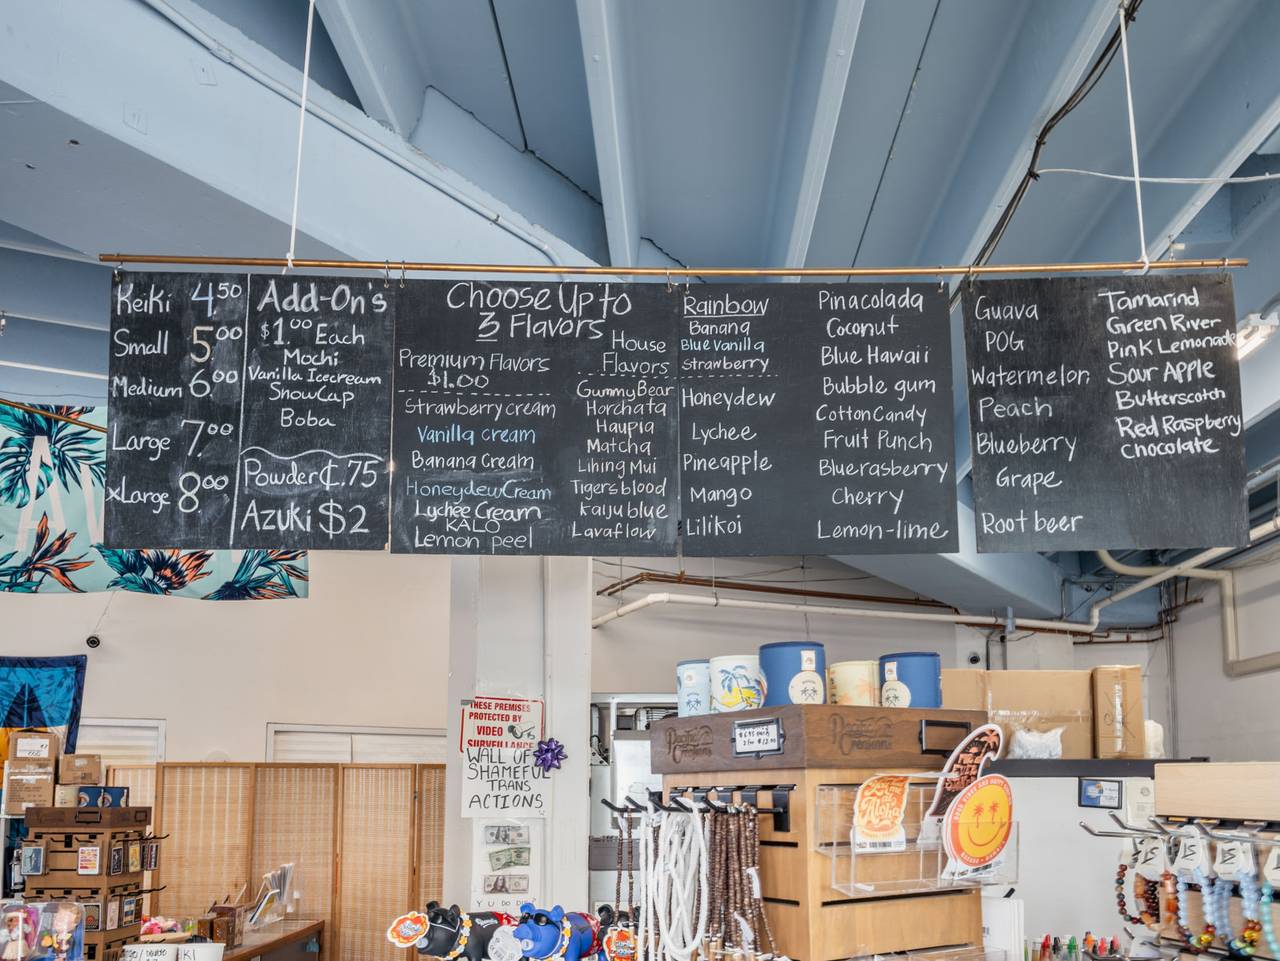 Keiki 4.50
Small 5.00
Medium 6.00
Large 7.00
xLarge 8.00
Add-On's
$1.00 Each
Mochi
Vanilla Icecream
SnowCap
Boba
Powder ₵.75
Azuki $2
Choose Up to
3 Flavors
Premium Flavors
$1.00
Strawberry cream
Vanilla cream
Banana Cream
Honeydew Cream
Lychee Cream
KALO
Lemon peel
House
Flavors
Gummy Bear
Horchata
Haupia
Matcha
Lihing Mui
Tigers blood
Kaiju blue
Lavaflow
Rainbow
Banana
Blue Vanilla
Strawberry
Honeydew
Lychee
Pineapple
Mango
Lilikoi
Pinacolada
Coconut
Blue Hawaii
Bubble gum
Cotton Candy
Fruit Punch
Bluerasberry
Cherry
Lemon-lime
Guava
POG
Watermelon
Peach
Blueberry
Grape
Root beer
Tamarind
Green River
Pink Lemonade
Sour Apple
Butterscotch
Red Raspberry
Chocolate
THESE PREMISES
PROTECTED BY
VIDEO
SURVEILLANCE
WALL OF
SHAMEFUL
TRANS
ACTIONS
Y U DO DIS
Pacific
Creations
$6.95 each
2 for $12.00
Pacific
Creations
Aloha